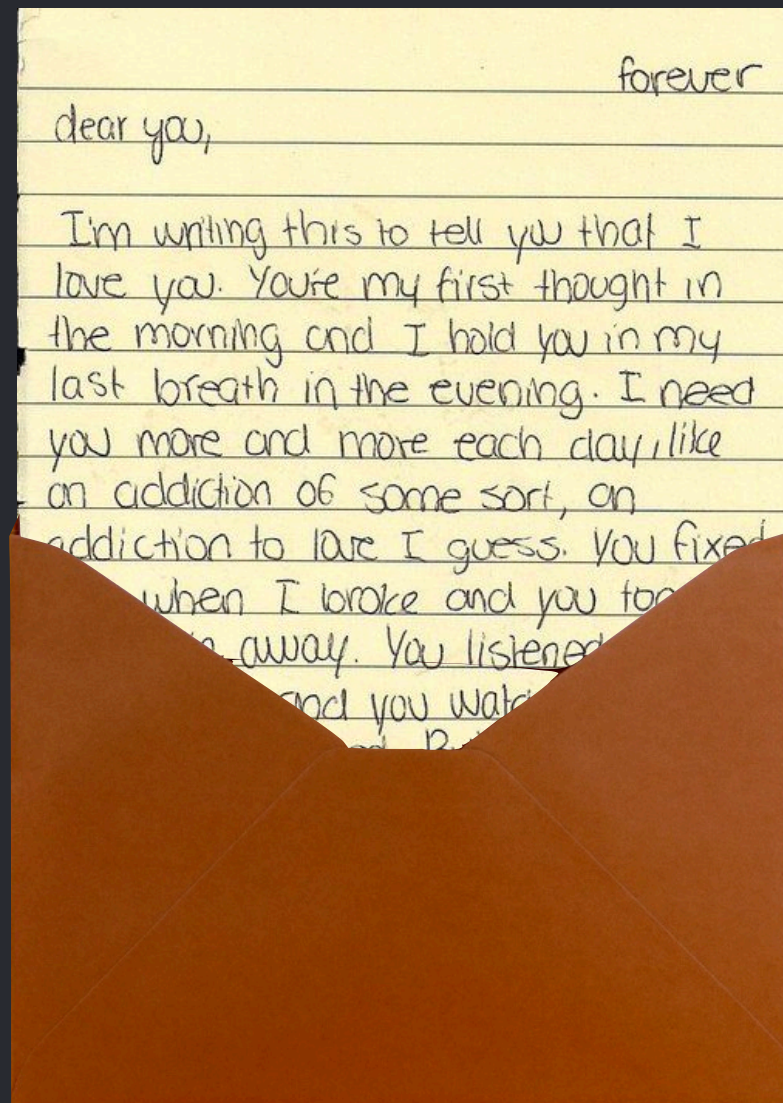 forever
dear you,
I'm writing this to tell you that I
love you. You're my first thought in
the morning and I hold you in my
last breath in the evening. I need
you more and more each day, like
an addiction of some sort, an
addiction to love I guess. You fixed
when I broke and you
away. You listened
and you